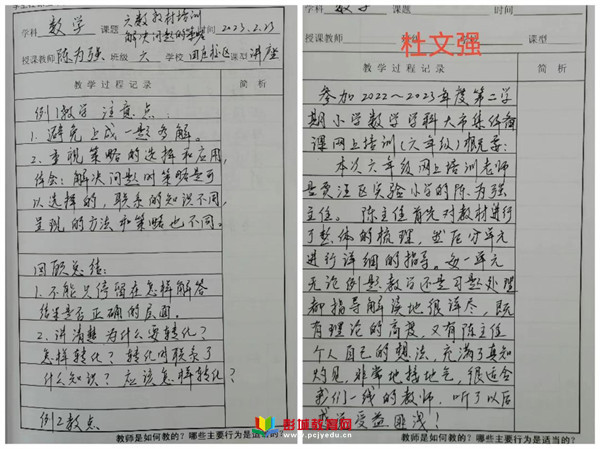 学科 数学 课题 六数教材培训 解决问题的策略 时间 2023.2.23
授课教师 陈为强 班级 六 学校 课型 讲座
教学过程记录 简析
例1教学 注意点：
1. 避免上成一题多解。
2. 重视策略的选择和应用，
体会：解决问题时策略是可
以选择的，联系的知识不同，
呈现的方法和策略也不同。
回顾总结：
1. 不能只停留在怎样解答
结果是否正确的层面。
2. 讲清楚为什么要转化？
怎样转化？转化时联系了
什么知识？应该怎样转化？
例2教点
教师是如何教的？哪些主要行为是适当的？
学科 数学 课题 时间
授课教师 杜文强 课型
教学过程记录 简析
参加2022～2023年度第二学
期小学数学学科大市集体备
课网上培训（六年级）有感：
本次六年级网上培训老师
是贾汪区实验小学的陈为强
主任。陈主任首先对教材进行
了整体的梳理，然后分单元
进行详细的指导。每一单元
无论例题教学还是习题处理
都指导解读地很详尽，既
有理论的高度，又有陈主任
个人自己的想法，充满了真知
灼见，非常地接地气，很适合
我们一线的教师，听了以后
我深受益匪浅！
教师是如何教的？哪些主要行为是适当的？
彭城教育网
www.pcjyedu.cn